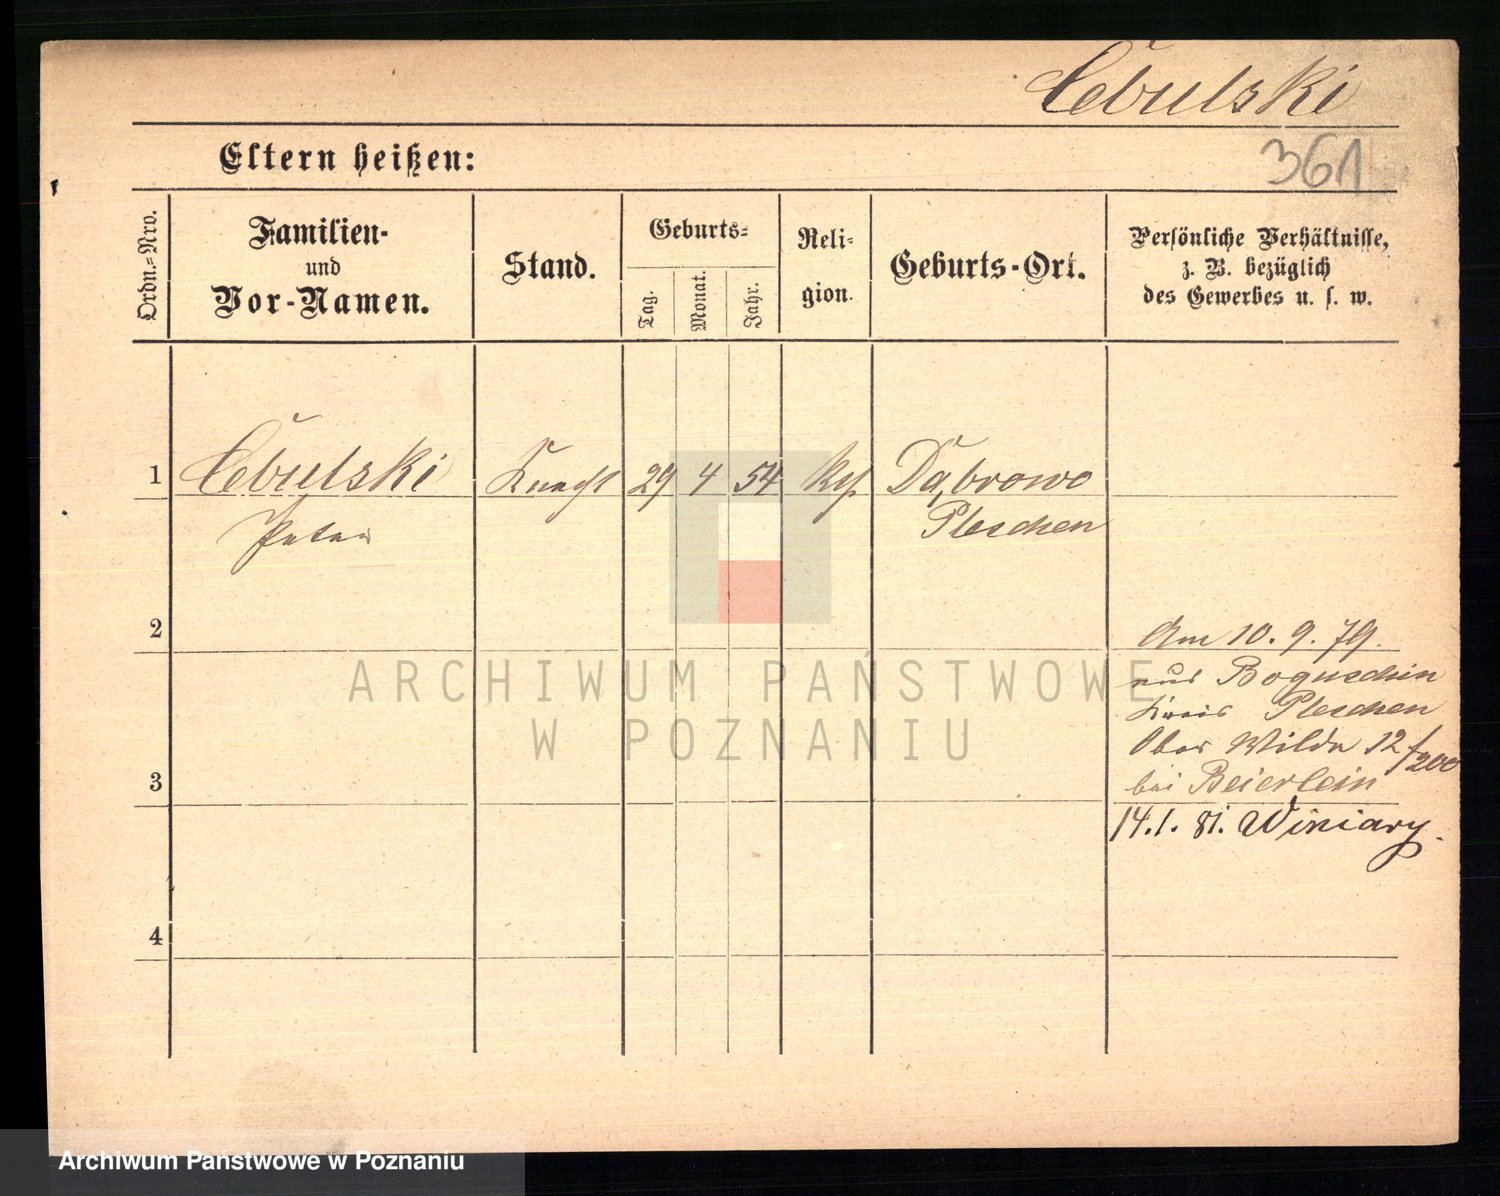 Cebulski
Eltern heißen:
361
Ordn.-Nro.
Familien-
und
Vor-Namen.
Stand.
Geburts-
Tag.
Monat.
Jahr.
Reli-
gion.
Geburts-Ort.
Persönliche Verhältnisse,
z. B. bezüglich
des Gewerbes u. s. w.
1 Cebulski Knecht 29 4 54 Dąbrowo
Peter Pleschen
2
Am 10. 9. 79.
aus Boguschin
Kreis Pleschen
Ober Wilda 12/200
bei Beierlein
3
14.1. 81. Winiary.
4
ARCHIWUM PAŃSTWOWE
W POZNANIU
Archiwum Państwowe w Poznaniu